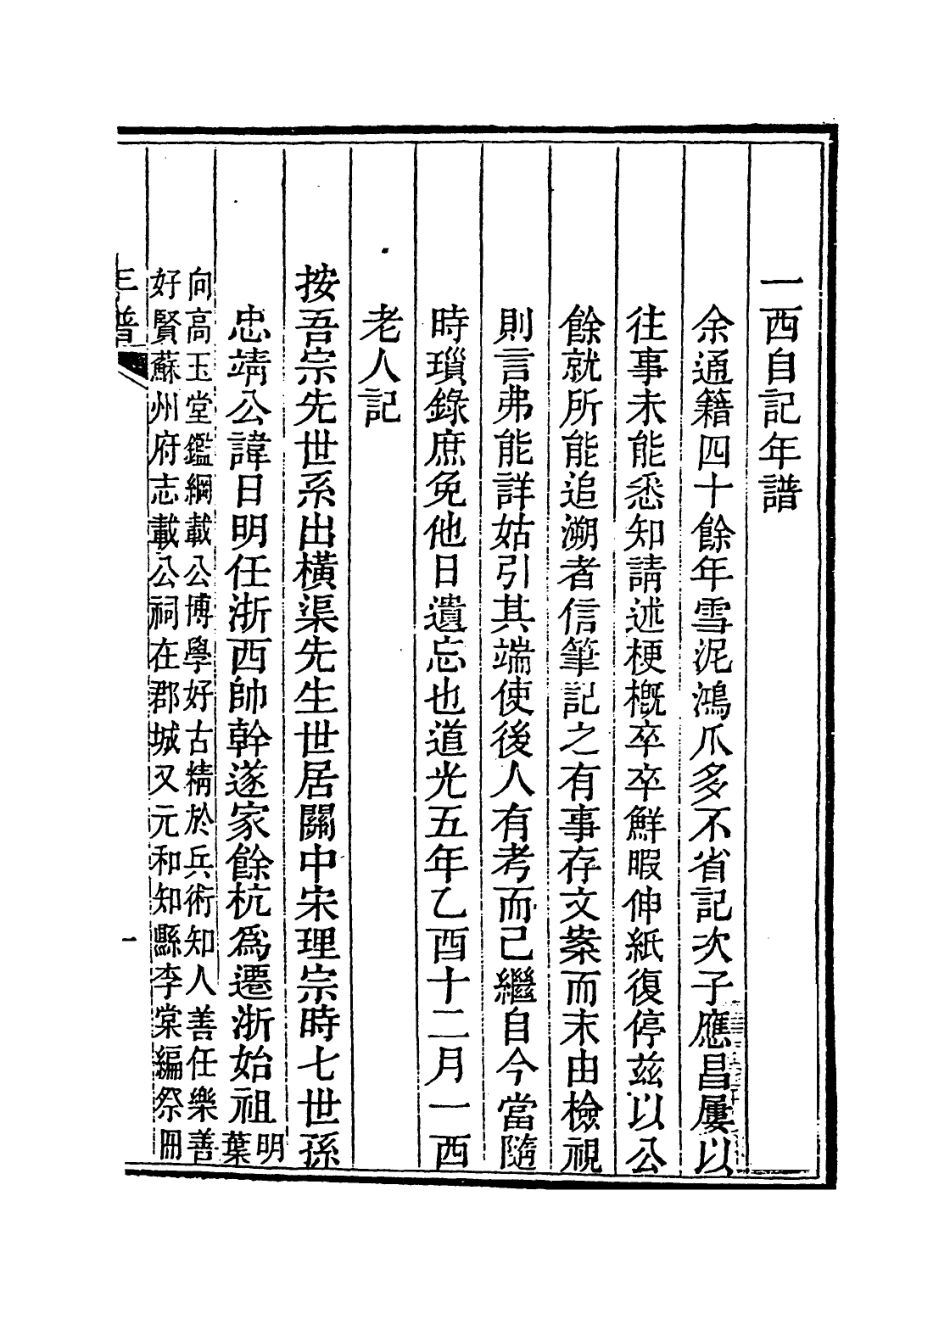 一西自記年譜
余通籍四十餘年雪泥鴻爪多不省記次子應昌屢以
往事未能悉知請述梗概卒卒鮮暇伸紙復停茲以公
餘就所能追溯者信筆記之有事存文案而末由檢視
則言弗能詳姑引其端使後人有考而已繼自今當隨
時瑣錄庶免他日遺忘也道光五年乙酉十二月一西
老人記
按吾宗先世系出橫渠先生世居關中宋理宗時七世孫
忠靖公諱日明任浙西帥幹遂家餘杭爲遷浙始祖明
葉
向高玉堂鑑綱載公博學好古精於兵術知人善任樂善
好賢蘇州府志載公祠在郡城又元和知縣李棠編祭冊
年譜
一